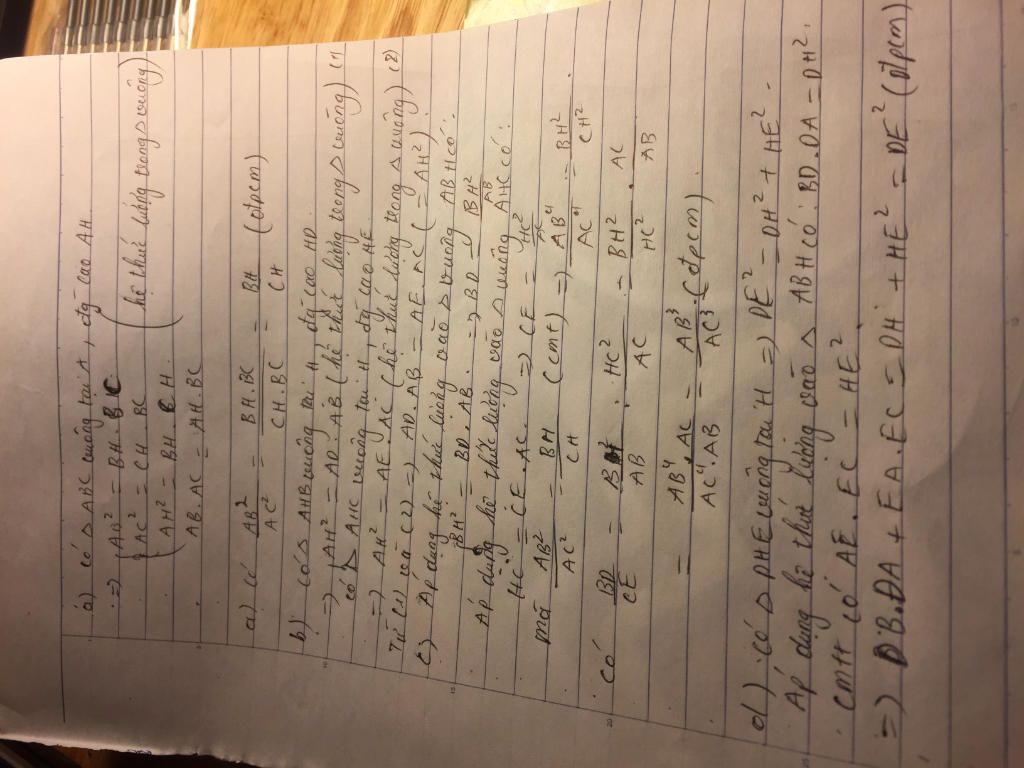 a) có △ ABC vuông tại A, đg cao AH
=> AB² = BH. BC
AC² = CH. BC (hệ thức lượng trong △ vuông)
AH² = BH. CH
AB. AC = AH. BC
a) có AB²/AC² = BH.BC/CH.BC = BH/CH (đpcm)
b) có △ AHB vuông tại H, đg cao HD
=> AH² = AD. AB (hệ thức lượng trong △ vuông) (1)
có △ AHC vuông tại H, đg cao HE
=> AH² = AE. AC (hệ thức lượng trong △ vuông) (2)
Từ (1) và (2) => AD. AB = AE. AC (= AH²)
c) Áp dụng hệ thức lượng vào △ vuông ABH có:
BH² = BD. AB. => BD = BH²/AB
Áp dụng hệ thức lượng vào △ vuông AHC có:
HC² = CE. AC. => CE = HC²/AC
mà AB²/AC² = BH/CH (cmt) => AB⁴/AC⁴ = BH²/CH².
có BD/CE = BH²/AB : HC²/AC = BH²/HC² . AC/AB
= AB⁴. AC/AC⁴. AB = AB³/AC³ (đpcm)
d) có △ DHE vuông tại H => DE² = DH² + HE².
Áp dụng hệ thức lượng vào △ ABH có: BD. DA = DH².
CMTT có AE. EC = HE²
=> DB.DA + EA. EC = DH² + HE² = DE² (đpcm)